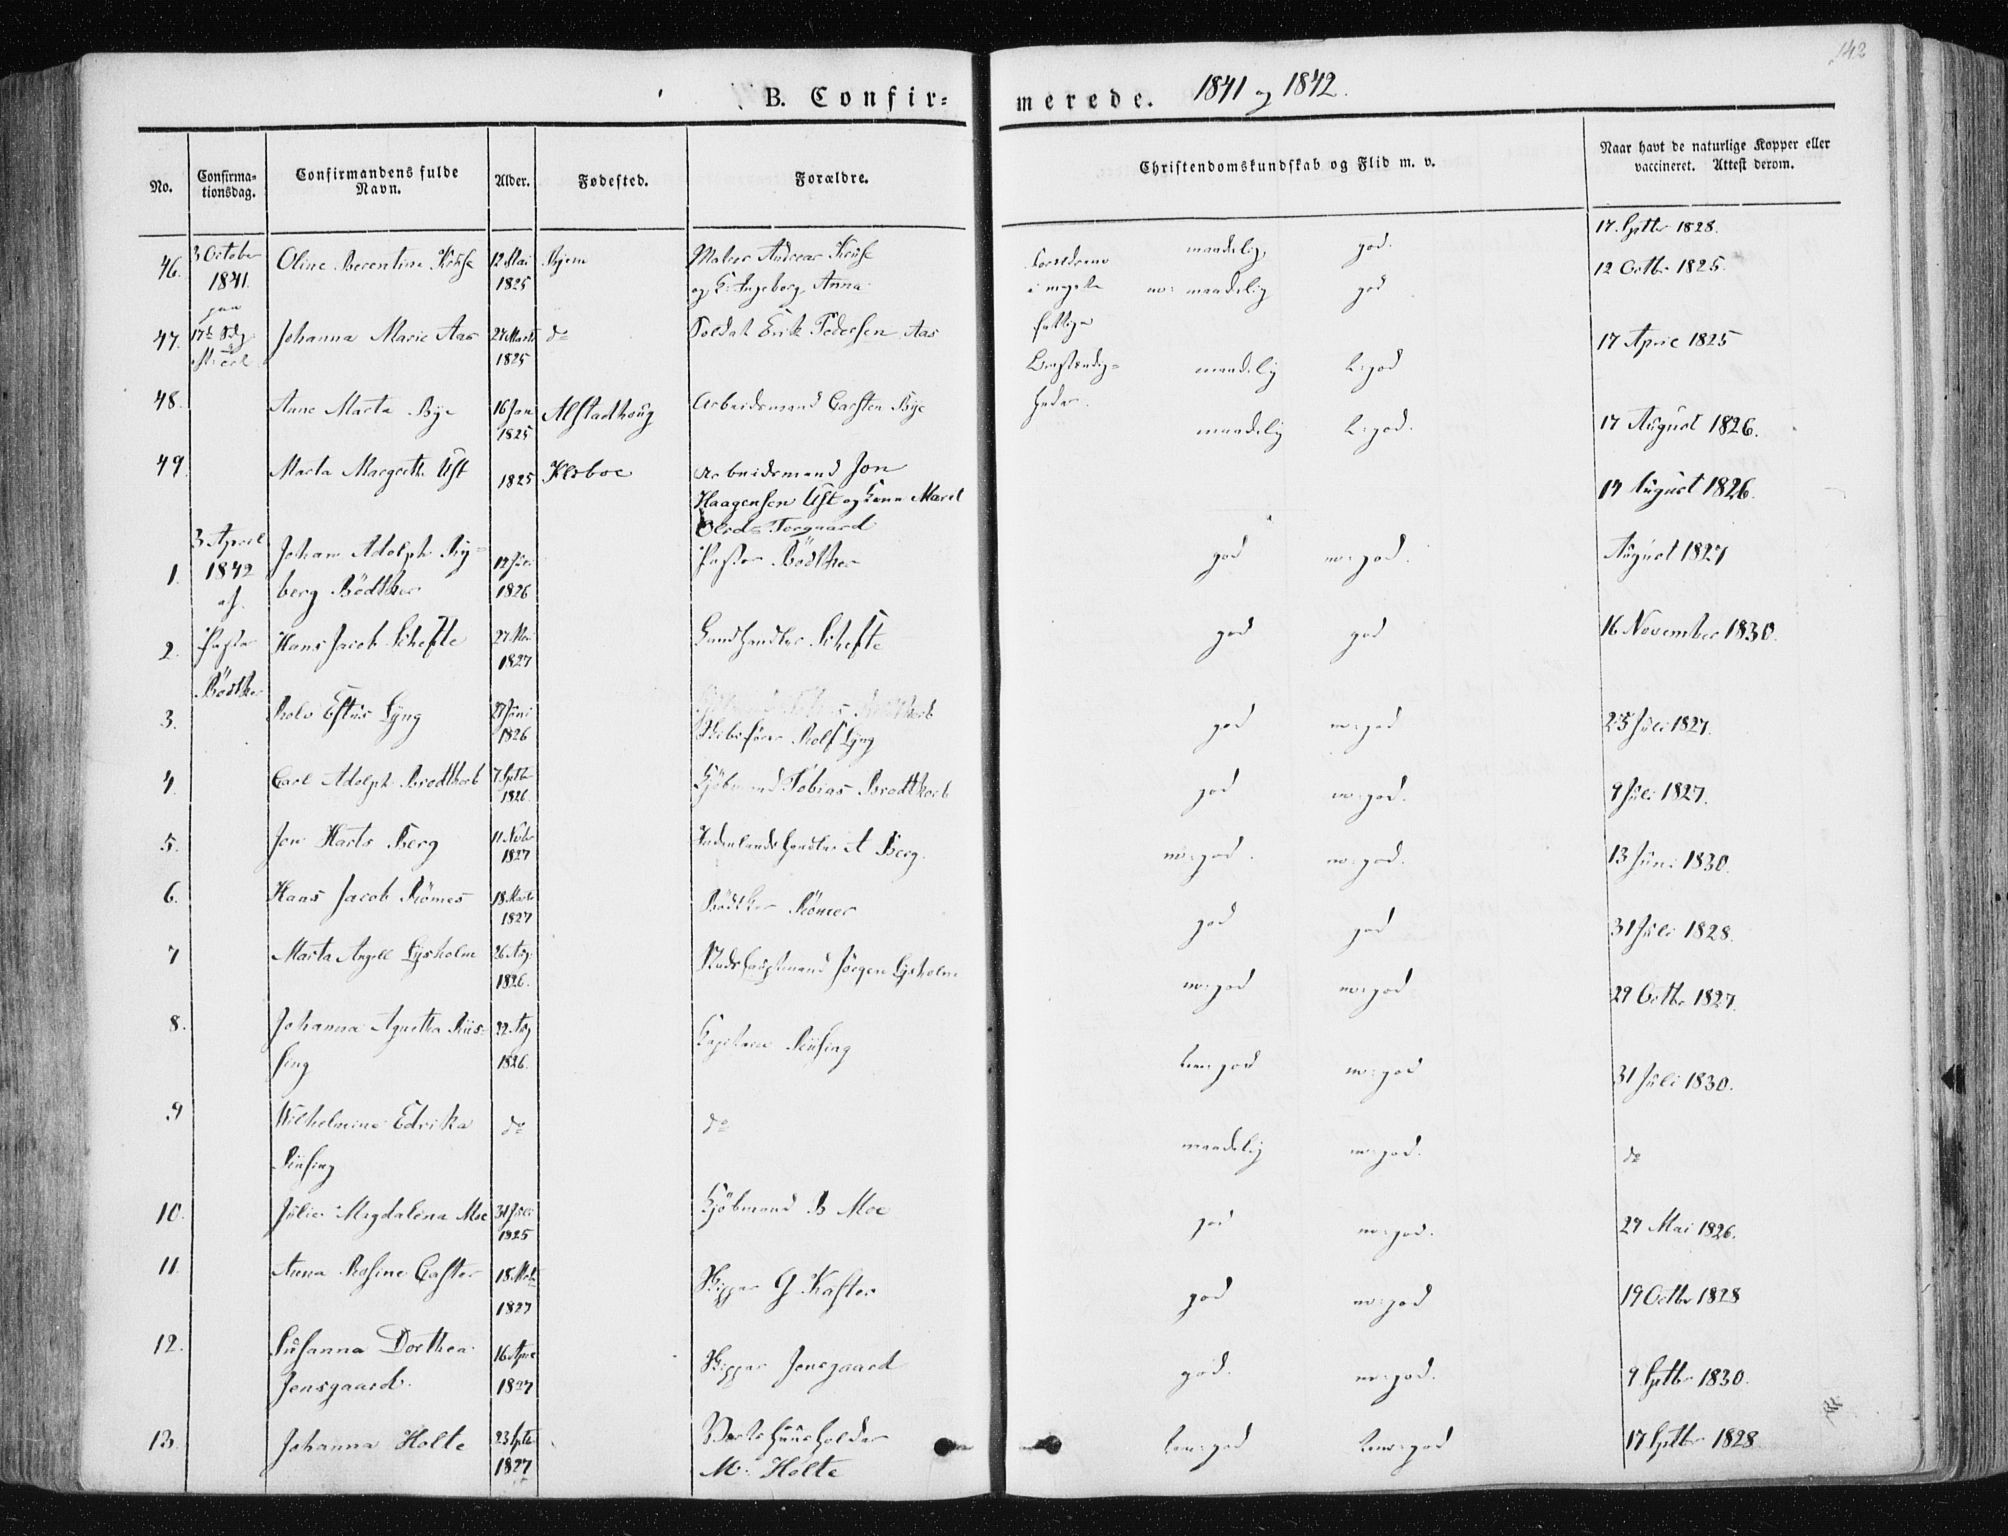 142
B. Confir=
merede. 1841 og 1842.
No.
Confirma=
tionsdag.
Confirmandens fulde
Navn.
Alder.
Fødested.
Forældre.
Christendomskundskab og Flid m. v.
Naar havt de naturlige Kopper eller
vaccineret. Attest derom.
17 Septbr 1828.
46. 3 October 1841. Oline Berentine Kruse 12 Mai 1825 Hjem Andreas Kruse
og K: Ingeborg Anna
maadelig, god.
12 Octbr 1825.
no: maadelig god
47. Johanna Marie Aas 27 Marts 1825 do Soldat Erik Pedersen Aas
17 April 1825
maadelig t:god
48. Anne Marta Bye 16 Jan 1825 Alstadhoug Arbeidsmand Carsten Bye
maadelig t:god.
17 August 1826.
49. Marta Margrethe Ust 1825 Klæboe Arbeidsmand Jon
Haagensen Ust og Kone Maret
Olsdr Torgaard
17 August 1826.
1. 3 April 1842 af Pastor Bödtker
Johan Adolph Ry=
berg Bödtker 1826 Pastor Bödtker
god no:god.
August 1827
2. Hans Jacob Schefte 27 Mai 1827 Landhandler Schefte
god god
16 November 1830.
3. Rolv Estus Lyng 27 Juni 1826
Skibsförer Rolf Lyng
god no:god
25 Juli 1827.
4. Carl Adolph Brodtkorb 7 Septbr 1826. Kjöbmand Tobias Brodtkorb
god no:god.
9 Juli 1827.
5. Jon Harts Berg 11 Novbr 1827 A Berg.
no:god. no:god.
13 Juni 1830.
6. Hans Jacob Römer 18 Marts 1827 Bödtker Römer
god god
31 Juli 1828.
7 Marta Angell Lysholm 26 Aug. 1826. Stadshauptmand Jörgen Lysholm
no:god no:god
29 Octbr 1827.
8. Johanna Agnetha Riis=
sing 22 Aug 1826. Capitain Riising
no:god
31 Juli 1830.
9 Wilhelmine Edrika
Riising do do
maadelig no:god.
do
10. Julie Magdalena Moe 31 Juli 1825 Kjöbmand B Moe
god no:god.
27 Mai 1826.
11. Anna Rosine Caster 18 1827 Skipper G. Kaster
god no:god
19 Octbr 1828
12. Susanna Dorthea
Jensgaard. 16 April 1827 Skipper Jensgaard
god. no:god.
9 Septbr 1830.
13. Johanna Holte 23 Septbr 1827 Vertshuusholder
M. Holte
17 Septbr 1828